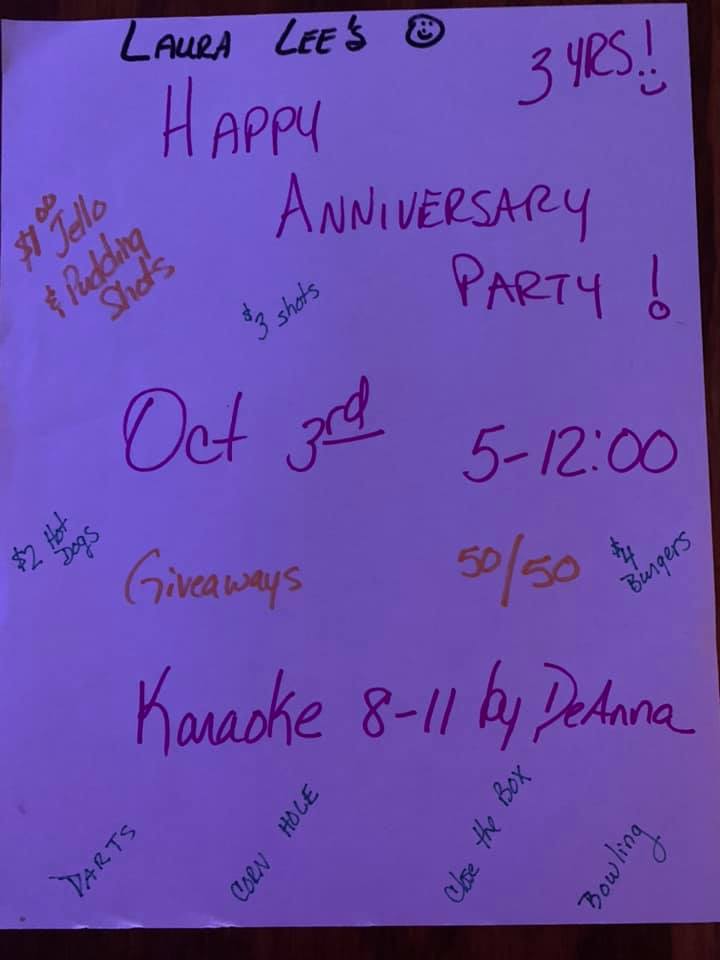 LAURA LEE'S
3 YRS!
HAPPY
ANNIVERSARY
PARTY!
$1.00 Jello
& Pudding
Shots
$3 shots
Oct 3rd 5-12:00
$2 Hot
Dogs
Giveaways 50/50
$4
Burgers
Karaoke 8-11 by DeAnna
DARTS
CORN HOLE
Close the BOX
Bowling